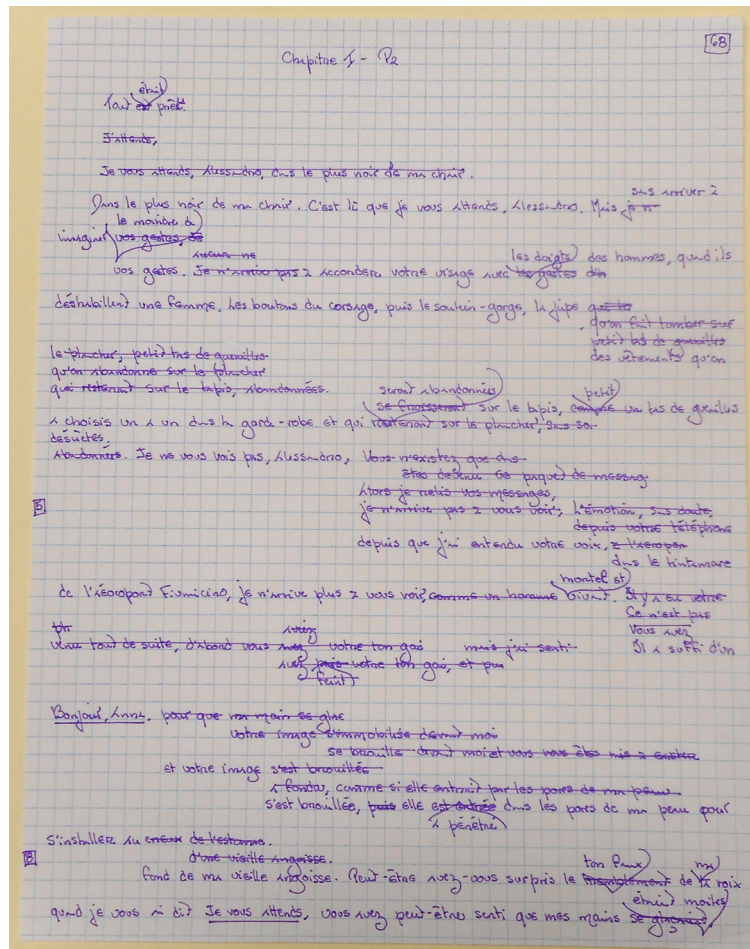 68
Chapitre I - P2
était
Tout est prêt.
J'attends,
Je vous attends, Alessandro, dans le plus noir de ma chair.
sans arriver à
Dans le plus noir de ma chair. C'est là que je vous attends, Alessandro. Mais je n'
la manière de
imaginer vos gestes, de
aucun ne les doigts des hommes, quand ils
vos gestes. Je n'arrive pas à accorder votre visage avec les gestes d'un
déshabillent une femme. Les boutons du corsage, puis le soutien-gorge, la jupe
, qu'on fait tomber sur
petit tas de guenilles
le plancher, petit tas de guenilles
des vêtements qu'on
qu'on abandonne sur le plancher
qui resteront sur le tapis, abandonnées.
seront abandonnées petit
se froisseront sur le tapis, comme un tas de guenilles
a choisis un à un dans la garde-robe et qui resteront sur le plancher, sans
désuètes.
abandonnées. Je ne vous vois pas, Alessandro, Vous n'existez que dans
êtes devenu ce paquet de messages
Alors je relis vos messages,
5
je n'arrive pas à vous voir, L'émotion, sans doute,
depuis votre téléphone
depuis que j'ai entendu votre voix, à l'aéroport
dans le tintamarre
mortel et
de l'aéroport Fiumicino, je n'arrive plus à vous voir, comme un homme vivant. Il y a eu votre
Ce n'est pas
Vous avez
aviez
venu tout de suite, d'abord vous avez votre ton gai mais j'ai senti Il a suffi d'un
avez pris votre ton gai, et puis
feint
Bonjour, Anna, pour que ma main se glace
votre image s'immobilise devant moi
se brouille devant moi et vous vous êtes mis à
et votre image s'est brouillée
a fondu, comme si elle entrait par les pores de ma peau
s'est brouillée, puis elle est entrée dans les pores de ma peau pour
a pénétré
s'installer au creux de l'estomac.
d'une vieille angoisse.
8
ton faux ma
fond de ma vieille angoisse. Peut-être avez-vous surpris le tremblement de la voix
étaient moites
quand je vous ai dit Je vous attends, vous avez peut-être senti que mes mains se glaçaient,